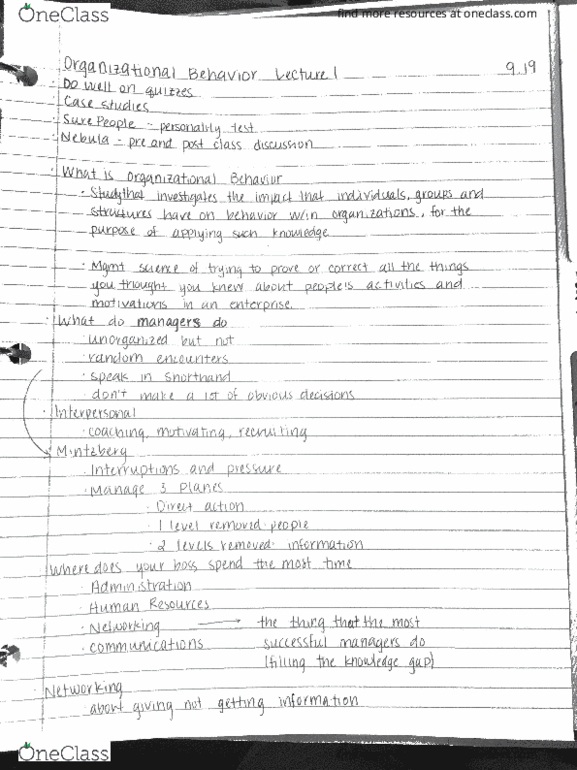 OneClass
find more resources at oneclass.com
Organizational Behavior Lecture 1 9.19
· Do well on quizzes
· Case studies
· SurePeople - personality test
· Nebula - pre and post class discussion
· What is Organizational Behavior
· Study that investigates the impact that individuals, groups and
structures have on behavior w/in organizations, for the
purpose of applying such knowledge
· Mgmt science of trying to prove or correct all the things
you thought you knew about people's activities and
motivations in an enterprise.
· What do managers do
· unorganized but not
· random encounters
· speak in shorthand
· don't make a lot of obvious decisions
· Interpersonal
· coaching, motivating, recruiting
· Mintzberg
· Interruptions and pressure
· Manage 3 Planes
· Direct action
· 1 level removed people
· 2 levels removed information
· Where does your boss spend the most time
· Administration
· Human Resources
· Networking → the thing that the most
· communications successful managers do
(filling the knowledge gap)
· Networking
· about giving not getting information
OneClass